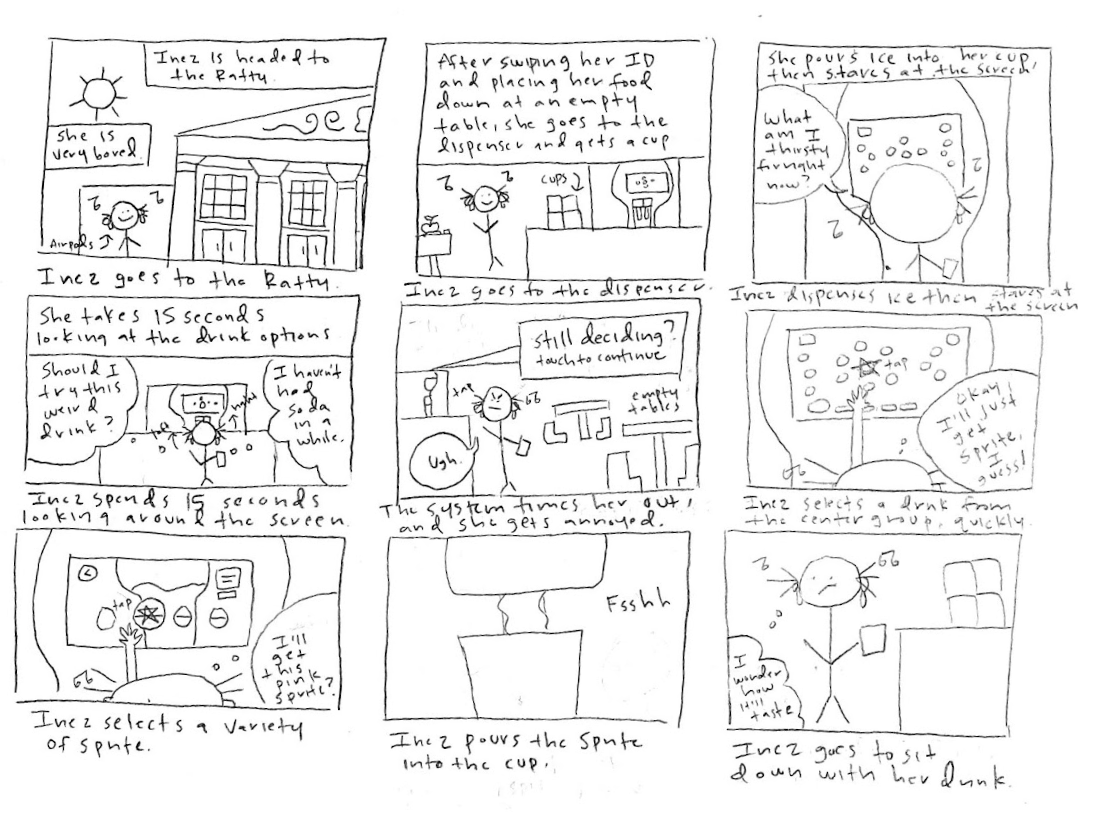 Inez is headed to
the Ratty.
She is
very bored.
Airpods
Inez goes to the Ratty.
After swiping her ID
and placing her food
down at an empty
table, she goes to the
dispenser and gets a cup
cups
Inez goes to the dispenser.
She pours ice into her cup,
then stares at the screen.
What
am I
thirsty
for right
now?
Inez dispenses ice then stares at
the screen
She takes 15 seconds
looking at the drink options
Should I
try this
weird
drink?
I haven't
had
soda
in a
while.
Inez spends 15 seconds
looking around the screen.
still deciding?
touch to continue
tap
empty
tables
Ugh.
The system times her out,
and she gets annoyed.
tap
Okay!
I'll just
get
Sprite,
I
guess!
Inez selects a drink from
the center group, quickly.
tap
I'll
get
this
pink
sprite?
Inez selects a variety
of sprite.
Fsshh
Inez pours the Sprite
into the cup.
I
wonder
how
it'll
taste
Inez goes to sit
down with her drink.